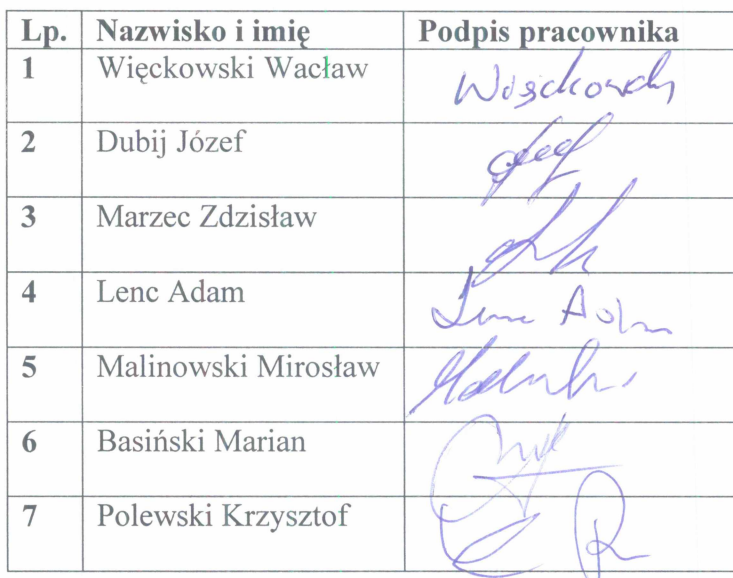 Lp. Nazwisko i imię Podpis pracownika
1 Więckowski Wacław Więckowski
2 Dubij Józef
3 Marzec Zdzisław
4 Lenc Adam Lenc Adam
5 Malinowski Mirosław
6 Basiński Marian
7 Polewski Krzysztof